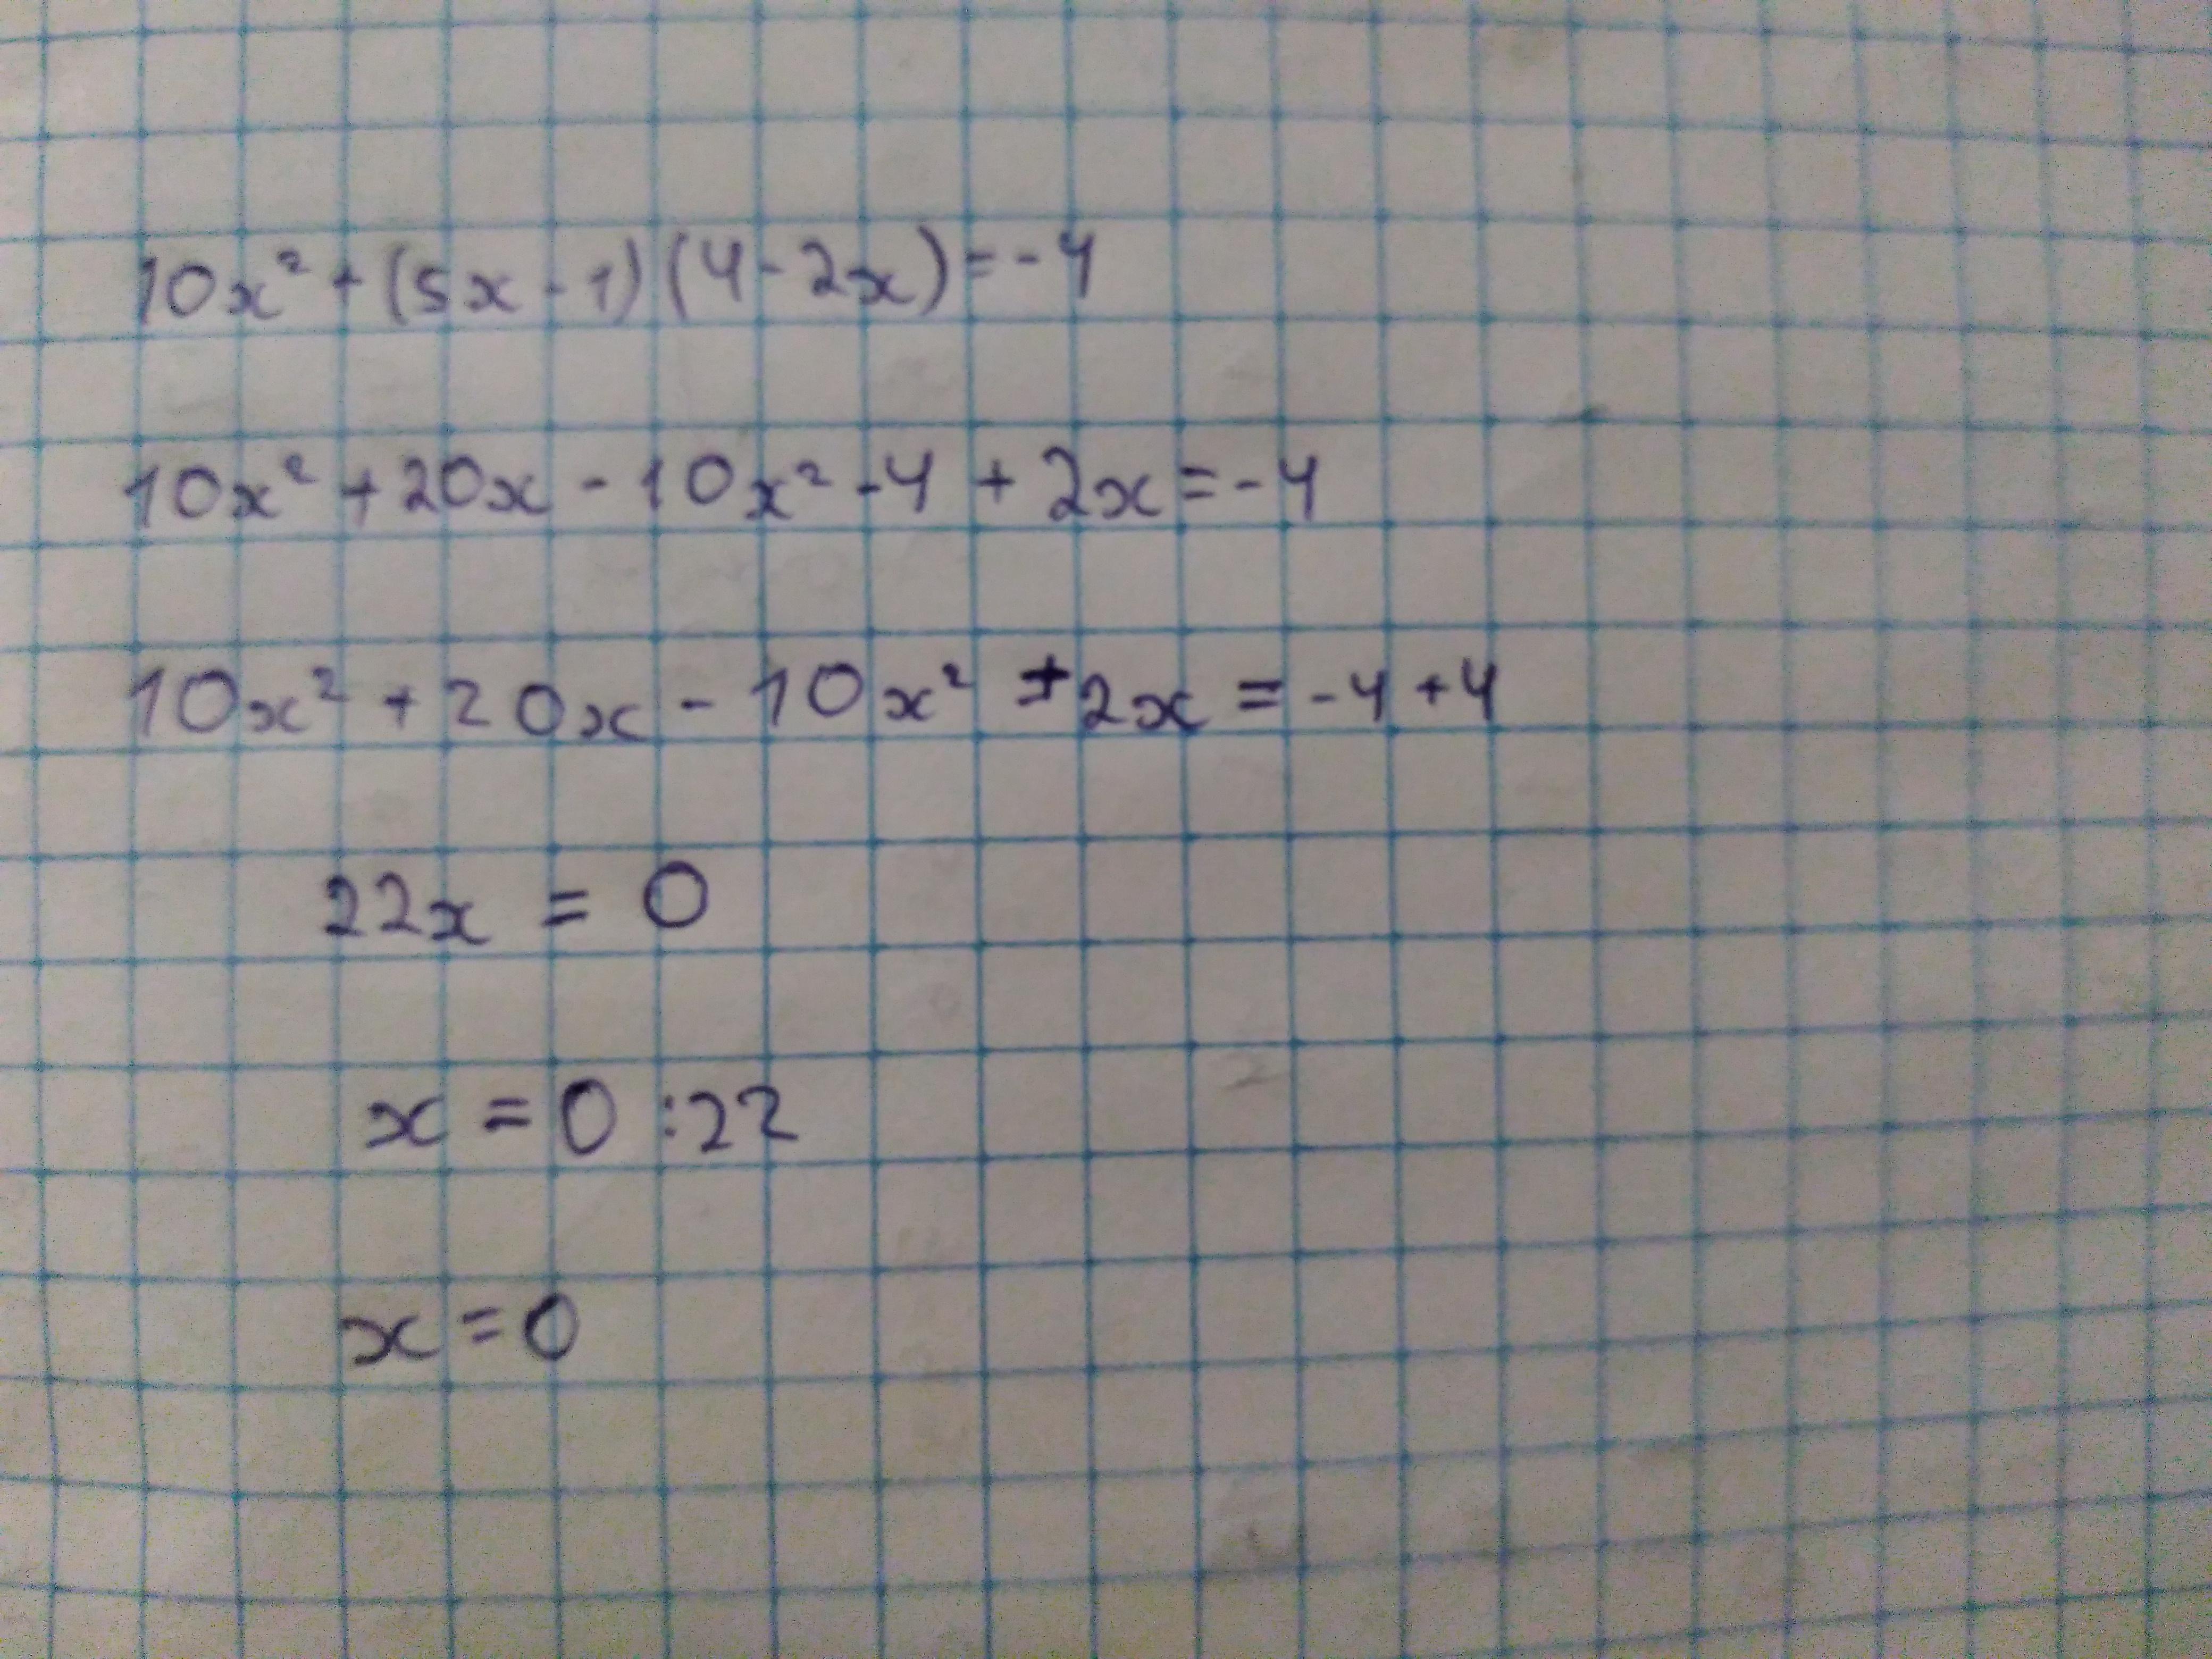 10x² + (5x - 1)(4 - 2x) = -4
10x² + 20x - 10x² - 4 + 2x = -4
10x² + 20x - 10x² + 2x = -4 + 4
22x = 0
x = 0 : 22
x = 0